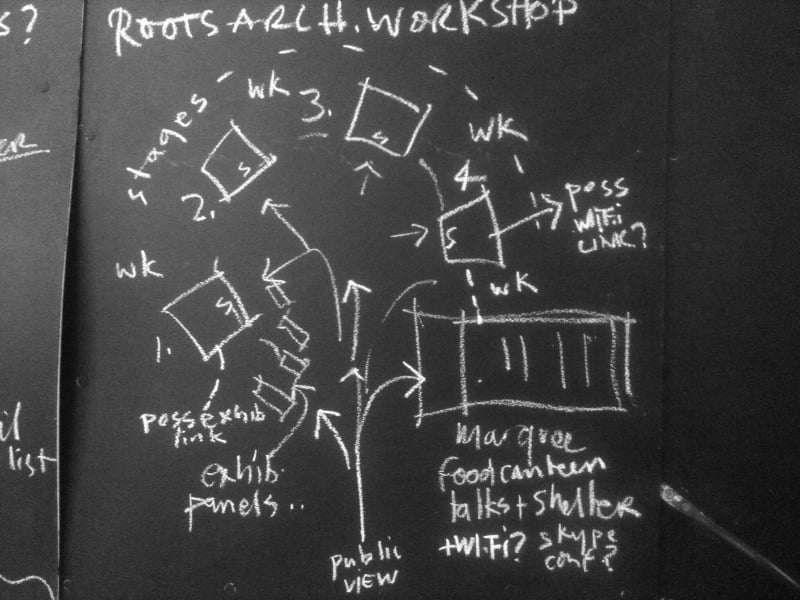 s?
ROOTS ARCH. WORKSHOP
ER
list
stages
wk
3.
S
wk
2.
S
4
S
poss
WIFI
LINK?
wk
1.
S
wk
poss exhib
link
exhib
panels..
public
VIEW
Marqee
food canteen
talks + shelter
+WIFI? skype
conf?